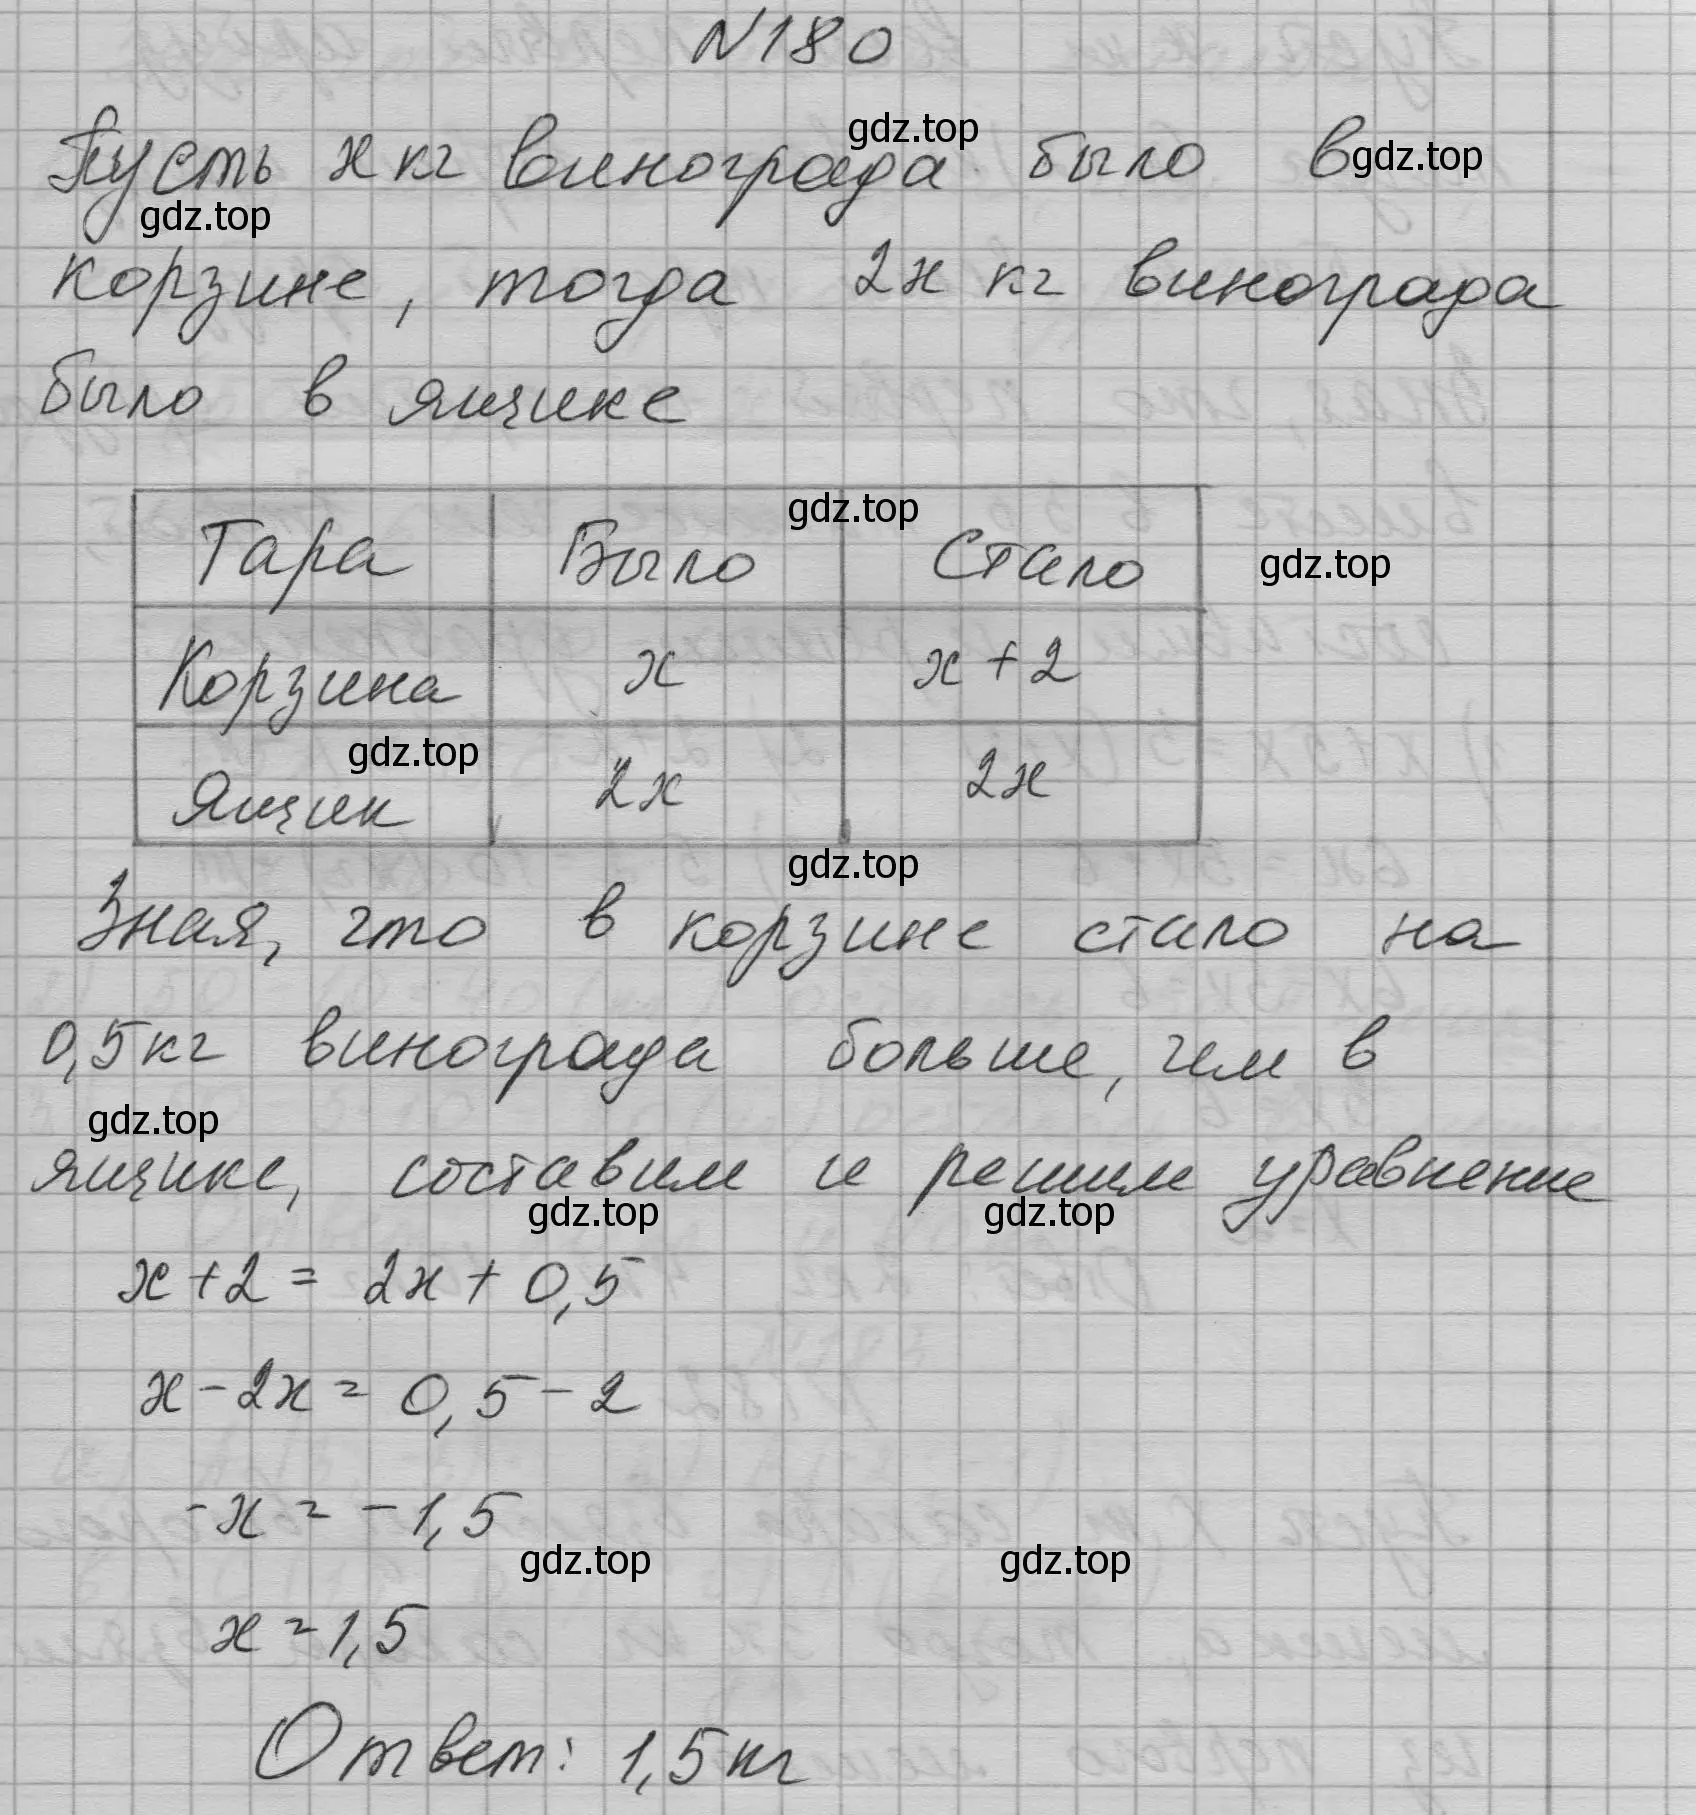 N180
gdz.top
Пусть x кг винограда было в
gdz.top
gdz.top
корзине, тогда 2x кг винограда
было в ящике
gdz.top
Тара Было Стало
gdz.top
Корзина x x+2
gdz.top
Ящик 2x 2x
gdz.top
Зная, что в корзине стало на
0,5кг винограда больше, чем в
gdz.top
ящике, составим и решим уравнение
gdz.top gdz.top
x+2 = 2x + 0,5
x - 2x = 0,5 - 2
-x = -1,5
gdz.top gdz.top
x = 1,5
Ответ: 1,5кг